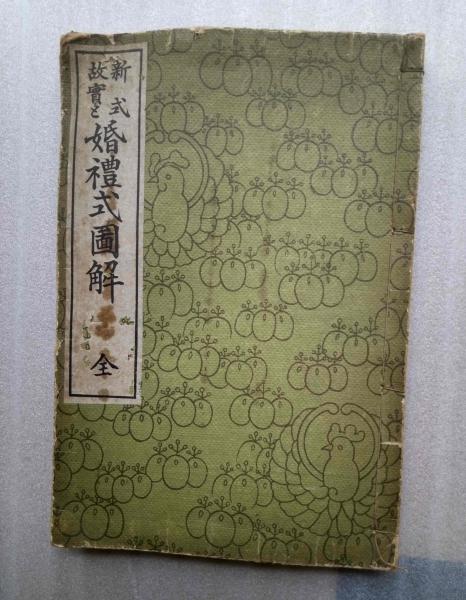 故實と新式
婚禮式圖解
全